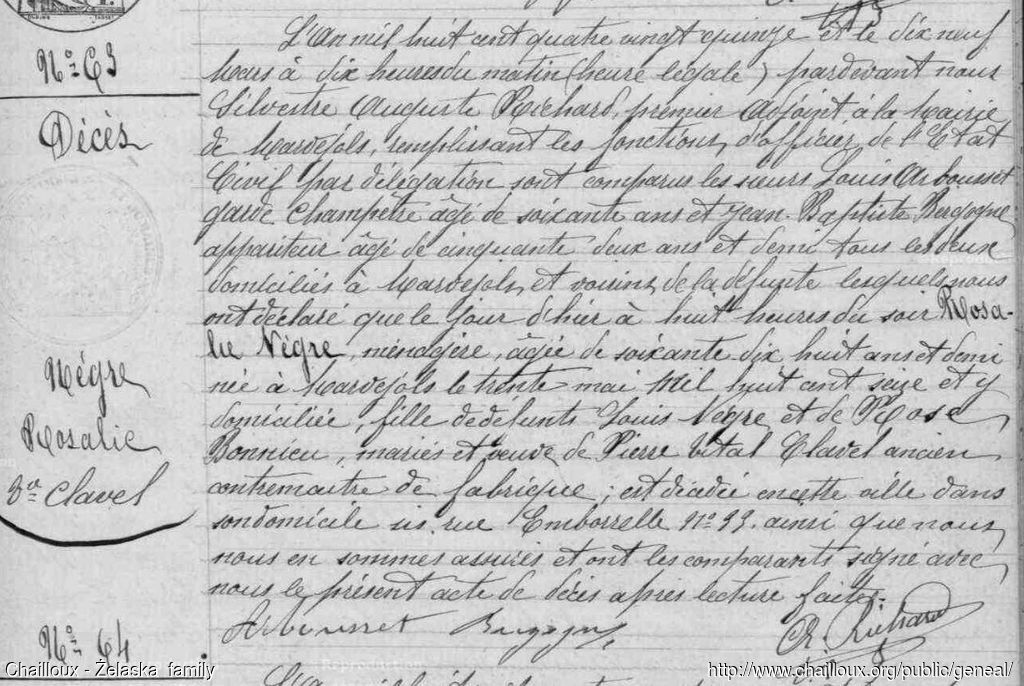 N° 63
Décès
Nègre
Rosalie
Vve Clavel
L'An mil huit cent quatre vingt quinze et le dix neuf
Mars à dix heures du matin (heure légale) pardevant nous
Silvestre Auguste Richard, premier Adjoint à la Mairie
de Marvejols, remplissant les fonctions d'officier de l'Etat
Civil par délégation sont comparus les sieurs Louis Arbousset
garde Champêtre âgé de soixante ans et Jean-Baptiste
appariteur âgé de cinquante deux ans et demi tous les deux
domiciliés à Marvejols et voisins de la défunte lesquels nous
ont déclaré que le jour d'hier à huit heures du soir Rosa-
lie Nègre, ménagère, âgée de soixante dix huit ans et demi
née à Marvejols le trente mai mil huit cent seize et y
domiciliée, fille de défunts Louis Nègre et de Rose
Bonnieu, mariés et veuve de Pierre Vital Clavel ancien
contremaitre de fabrique; est décédée en cette ville dans
son domicile sis rue Emborrelle N° 93. ainsi que nous
nous en sommes assurés et ont les comparants signé avec
nous le présent acte de décès après lecture faite.
Arbousset
A. Richard
N° 64
Chailloux - Żelaska family
http://www.chailloux.org/public/geneal/